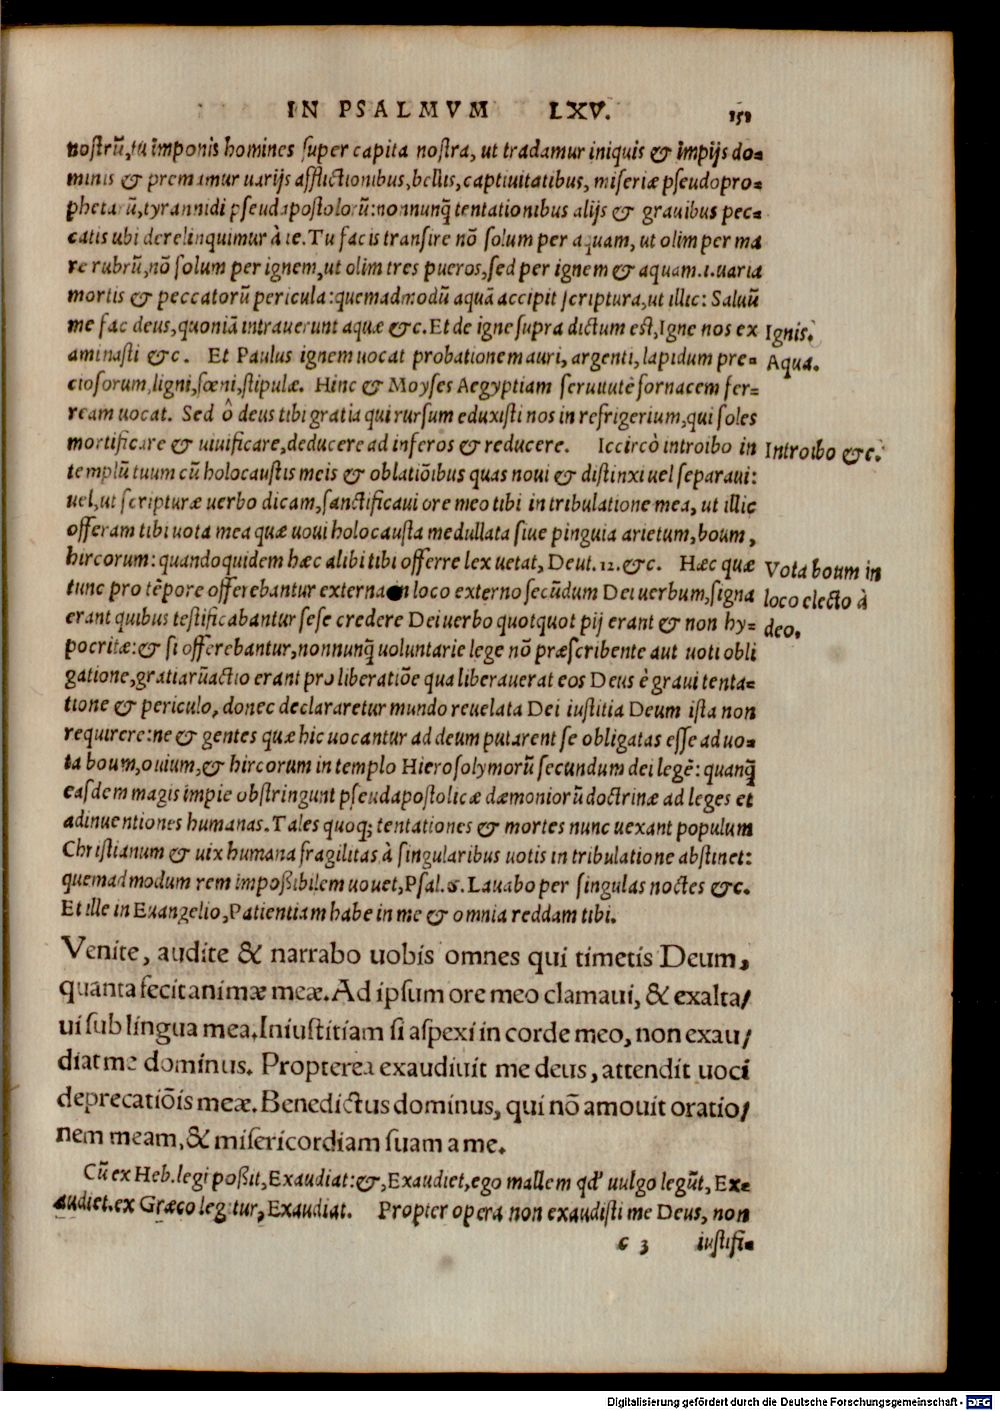 IN PSALMVM LXV. 151
nostrũ, tu imponis homines super capita nostra, ut tradamur iniquis & impijs do=
minis & premamur uarijs afflictionibus, bellis, captiuitatibus, miseriæ pseudopro=
phetarũ, tyrannidi pseudapostolorũ: nonnunq̃ tentationibus alijs & grauibus pec=
catis ubi derelinquimur à te. Tu facis transire nõ solum per aquam, ut olim per ma
re rubrũ, nõ solum per ignem, ut olim tres pueros, sed per ignem & aquam .i. uaria
mortis & peccatorũ pericula: quemadmodũ aquã accipit scriptura, ut illic: Saluũ
me fac deus, quoniã intrauerunt aquæ &c. Et de igne supra dictum est, Igne nos ex
Ignis.
aminasti &c. Et Paulus ignem uocat probationem auri, argenti, lapidum pre=
Aqua.
ciosorum, ligni, fœni, stipulæ. Hinc & Moyses Aegyptiam seruitutẽ fornacem fer=
ream uocat. Sed ô deus tibi gratia qui rursum eduxisti nos in refrigerium, qui soles
mortificare & uiuificare, deducere ad inferos & reducere. Iccircò introibo in
Introibo &c.
templũ tuum cũ holocaustis meis & oblatiõibus quas noui & distinxi uel separaui:
uel, ut scripturæ uerbo dicam, sanctificaui ore meo tibi in tribulatione mea, ut illic
offeram tibi uota mea quæ uoui holocausta medullata siue pinguia arietum, boum,
hircorum: quandoquidem hæc alibi tibi offerre lex uetat, Deut. 12. &c. Hæc quæ
Vota boum in
tunc pro tẽpore offerebantur externa in loco externo secũdum Dei uerbum, signa
loco electo à
erant quibus testificabantur sese credere Dei uerbo quotquot pij erant & non hy=
deo.
pocritæ: & si offerebantur, nonnunq̃ uoluntarie lege nõ præscribente aut uoti obli
gatione, gratiarũactio erant pro liberatiõe qua liberauerat eos Deus è graui tenta=
tione & periculo, donec declararetur mundo reuelata Dei iustitia Deum ista non
requirere: ne & gentes quæ hic uocantur ad deum putarent se obligatas esse ad uo=
ta boum, ouium, & hircorum in templo Hierosolymorũ secundum dei legẽ: quanq̃
easdem magis impie obstringunt pseudapostolicæ dæmoniorũ doctrinæ ad leges et
adinuentiones humanas. Tales quoq; tentationes & mortes nunc uexant populum
Christianum & uix humana fragilitas à singularibus uotis in tribulatione abstinet:
quemadmodum rem impoßibilem uouet, Psal. 6. Lauabo per singulas noctes &c.
Et ille in Euangelio, Patientiam habe in me & omnia reddam tibi.
Venite, audite & narrabo uobis omnes qui timetis Deum,
quanta fecit animæ meæ. Ad ipsum ore meo clamaui, & exalta/
ui sub lingua mea. Iniustitiam si aspexi in corde meo, non exau/
diat me dominus. Propterea exaudiuit me deus, attendit uoci
deprecatiõis meæ. Benedictus dominus, qui nõ amouit oratio/
nem meam, & misericordiam suam a me.
Cũ ex Heb. legi poßit, Exaudiat: &, Exaudiet, ego mallem qd' uulgo legũt, Ex=
audiet. ex Græco legitur, Exaudiat. Propter opera non exaudisti me Deus, non
c 3 iustifi=
Digitalisierung gefördert durch die Deutsche Forschungsgemeinschaft - DFG